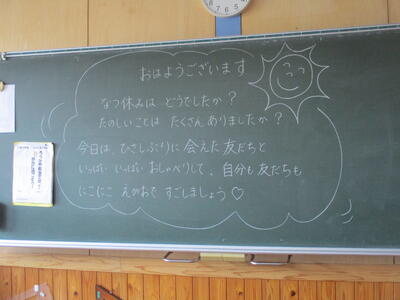 おはようございます
なつ休みは どうでしたか?
たのしいことは たくさん ありましたか?
今日は、ひさしぶりに 会えた 友だちと
いっぱい いっぱい おしゃべりして、自分も 友だちも
にこにこ えがおで すごしましょう♡